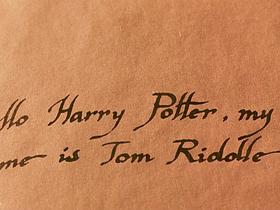 llo Harry Potter, my
me is Tom Riddle